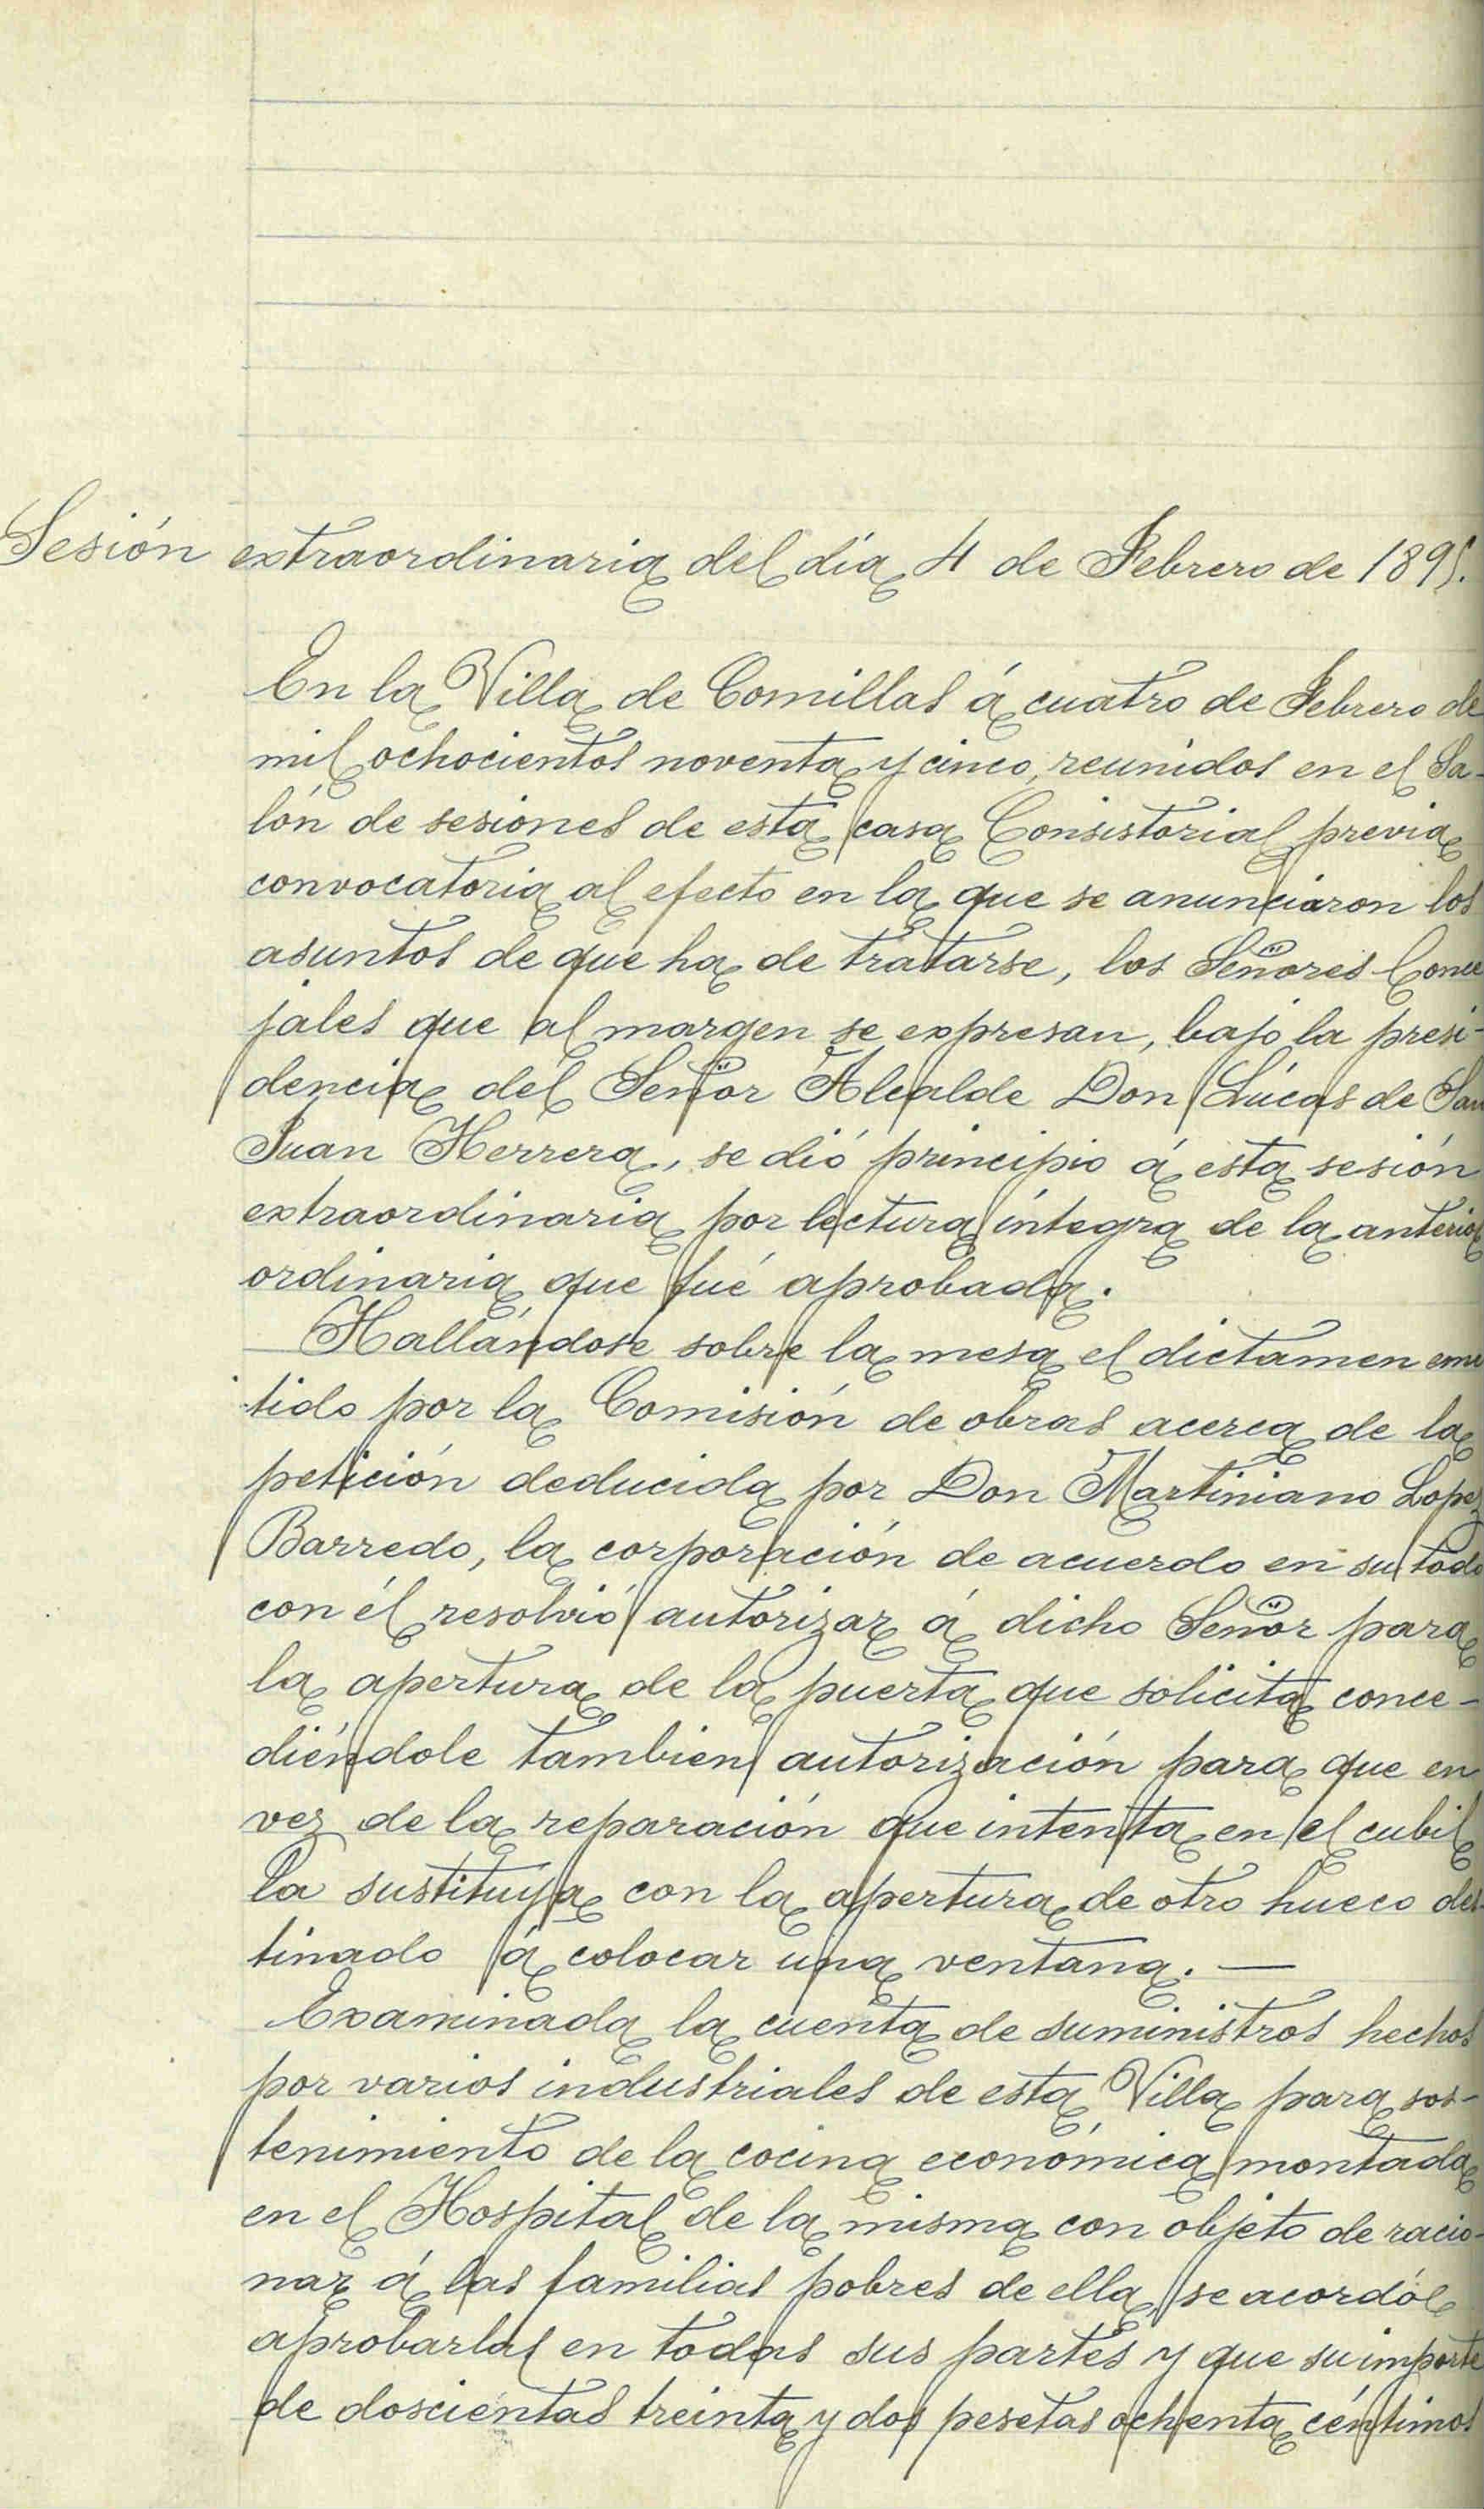 Sesión extraordinaria del día 4 de Febrero de 1895.
En la Villa de Comillas á cuatro de Febrero de
mil ochocientos noventa y cinco, reunidos en el Sa-
lón de sesiones de esta casa Consistorial previa
convocatoria al efecto en la que se anunciaron los
asuntos de que ha de tratarse, los Señores Conce
jales que al margen se expresan, bajo la presi-
dencia del Señor Alcalde Don Lúcas de San
Juan Herrera, se dió principio á esta sesión
extraordinaria por lectura íntegra de la anterior
ordinaria que fué aprobada.
Hallándose sobre la mesa el dictamen emi
tido por la Comisión de obras acerca de la
petición deducida por Don Martiniano Lopez
Barredo, la corporación de acuerdo en su todo
con él resolvió autorizar á dicho Señor para
la apertura de la puerta que solicita conce-
diéndole tambien autorización para que en
vez de la reparación que intenta en el cubil
la sustituya con la apertura de otro hueco des-
tinado á colocar una ventana. —
Examinada la cuenta de suministros hechos
por varios industriales de esta Villa para sos-
tenimiento de la cocina económica montada
en el Hospital de la misma con objeto de racio-
nar á las familias pobres de ella, se acordó
aprobarlas en todas sus partes y que su importe
de doscientas treinta y dos pesetas ochenta céntimos